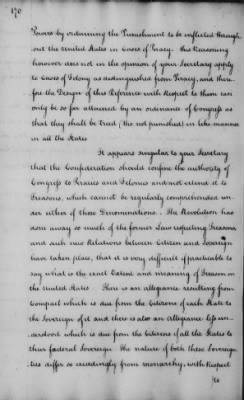 170
Powers by ordaining the Punishment to be inflicted through
out the United States in Cases of Piracy. this Reasoning
however does not in the opinion of your Secretary apply
to Cases of Felony as distinguished from Piracy, and there
fore the Design of this Reference with Respect to them can
only be so far attained by an ordinance of Congress as
that they shall be tried (tho not punished) in like manner
in all the States
It appears singular to your Secretary
that the Confederation should confine the authority of
Congress to Piracies and Felonies and not extend it to
Treasons, which cannot be regularly comprehended un
der either of those Denominations. The Revolution has
done away so much of the former Law respecting Treasons
and such new Relations between Citizen and Sovereign
have taken place, that it is very difficult if practicable to
say what is the exact Extent and meaning of Treason in
the United States. There is an allegiance resulting from
Compact which is due from the Citizens of each State to
the Sovereign of it and there is also an Allegiance less un-
derstood which is due from the Citizens of all the States to
their fœderal Sovereign. The nature of both these Sovereign
ties differ so exceedingly from monarchy, with Respect
to